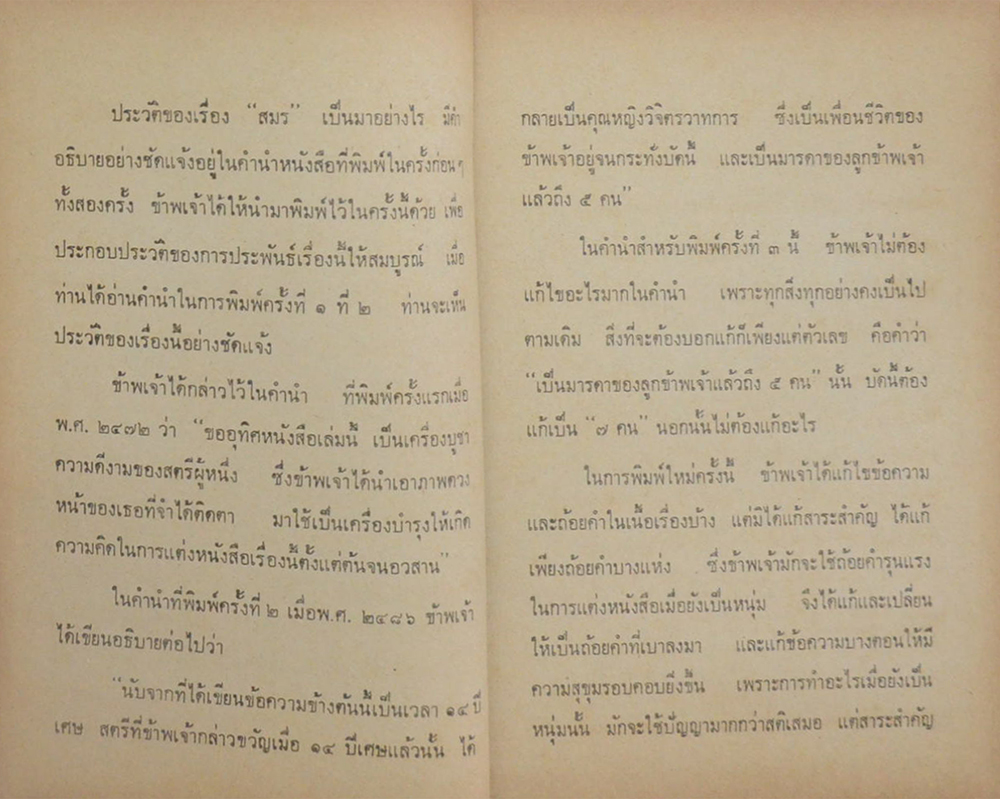 ประวัติของเรื่อง “สมร” เป็นมาอย่างไร มีคำ
อธิบายอย่างชัดแจ้งอยู่ในคำนำหนังสือที่พิมพ์ในครั้งก่อน ๆ
ทั้งสองครั้ง ข้าพเจ้าได้ให้นำมาพิมพ์ไว้ในครั้งนี้ด้วย เพื่อ
ประกอบประวัติของการประพันธ์เรื่องนี้ให้สมบูรณ์ เมื่อ
ท่านได้อ่านคำนำในการพิมพ์ครั้งที่ ๑ ที่ ๒ ท่านจะเห็น
ประวัติของเรื่องนี้อย่างชัดแจ้ง
ข้าพเจ้าได้กล่าวไว้ในคำนำ ที่พิมพ์ครั้งแรกเมื่อ
พ.ศ. ๒๔๗๒ ว่า “ขออุทิศหนังสือเล่มนี้ เป็นเครื่องบูชา
ความดีงามของสตรีผู้หนึ่ง ซึ่งข้าพเจ้าได้นำเอาภาพดวง
หน้าของเธอที่จำได้ติดตา มาใช้เป็นเครื่องบำรุงให้เกิด
ความคิดในการแต่งหนังสือเรื่องนี้ตั้งแต่ต้นจนอวสาน”
ในคำนำที่พิมพ์ครั้งที่ ๒ เมื่อพ.ศ. ๒๔๘๖ ข้าพเจ้า
ได้เขียนอธิบายต่อไปว่า
“นับจากที่ได้เขียนข้อความข้างต้นนี้เป็นเวลา ๑๔ ปี
เศษ สตรีที่ข้าพเจ้ากล่าวขวัญเมื่อ ๑๔ ปีเศษแล้วนั้น ได้
กลายเป็นคุณหญิงวิจิตรวาทการ ซึ่งเป็นเพื่อนชีวิตของ
ข้าพเจ้าอยู่จนกระทั่งบัดนี้ และเป็นมารดาของลูกข้าพเจ้า
แล้วถึง ๕ คน”
ในคำนำสำหรับพิมพ์ครั้งที่ ๓ นี้ ข้าพเจ้าไม่ต้อง
แก้ไขอะไรมากในคำนำ เพราะทุกสิ่งทุกอย่างคงเป็นไป
ตามเดิม สิ่งที่จะต้องบอกแก้ก็เพียงแต่ตัวเลข คือคำว่า
“เป็นมารดาของลูกข้าพเจ้าแล้วถึง ๕ คน” นั้น บัดนี้ต้อง
แก้เป็น “๗ คน” นอกนั้นไม่ต้องแก้อะไร
ในการพิมพ์ใหม่ครั้งนี้ ข้าพเจ้าได้แก้ไขข้อความ
และถ้อยคำในเนื้อเรื่องบ้าง แต่มิได้แก้สาระสำคัญ ได้แก้
เพียงถ้อยคำบางแห่ง ซึ่งข้าพเจ้ามักจะใช้ถ้อยคำรุนแรง
ในการแต่งหนังสือเมื่อยังเป็นหนุ่ม จึงได้แก้และเปลี่ยน
ให้เป็นถ้อยคำที่เบาลงมา และแก้ข้อความบางตอนให้มี
ความสุขุมรอบคอบยิ่งขึ้น เพราะการทำอะไรเมื่อยังเป็น
หนุ่มนั้น มักจะใช้ปัญญามากกว่าสติเสมอ แต่สาระสำคัญ